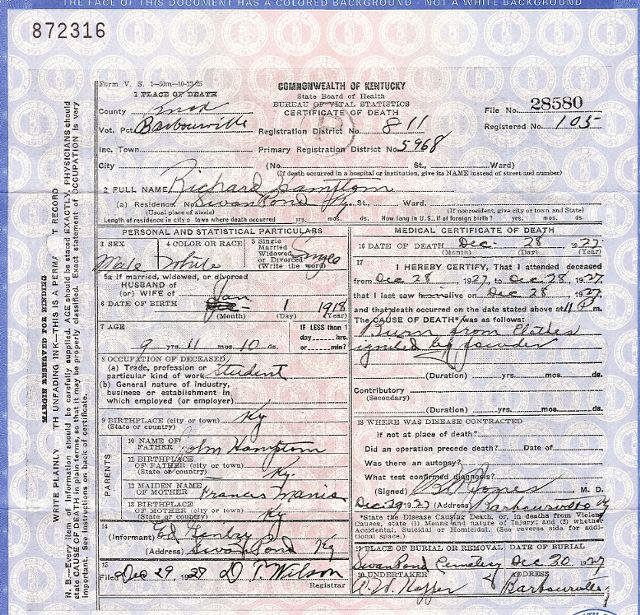 THE FACE OF THIS DOCUMENT HAS A COLORED BACKGROUND - NOT A WHITE BACKGROUND
872316
Form V. S. 1-50m-10-12-25
1 PLACE OF DEATH
County Knox
Vot. Pct. Barbourville
Inc. Town
City (No. St., Ward)
COMMONWEALTH OF KENTUCKY
State Board of Health
BUREAU OF VITAL STATISTICS
CERTIFICATE OF DEATH
Registration District No. 811
Primary Registration District No. 5968
File No. 28580
Registered No. 105
(If death occurred in a hospital or institution, give its NAME instead of street and number)
2 FULL NAME Richard Hampton
(a) Residence. No. Swan Pond Ky. St., Ward.
(Usual place of abode) (If nonresident, give city or town and State)
Length of residence in city or town where death occurred yrs. mos. ds. How long in U. S., if of foreign birth? yrs. mos. ds.
PERSONAL AND STATISTICAL PARTICULARS
3 SEX Male
4 COLOR OR RACE White
5 Single Married Widowed or Divorced (Write the word) Single
5a If married, widowed, or divorced
HUSBAND of
(or) WIFE of
6 DATE OF BIRTH Jan 1 1918
(Month) (Day) (Year)
7 AGE IF LESS than 1
9 yrs. 11 mos. 10 ds. day, hrs. or min?
8 OCCUPATION OF DECEASED
(a) Trade, profession or particular kind of work Student
(b) General nature of industry, business or establishment in which employed (or employer)
9 BIRTHPLACE (city or town) Ky
(State or country)
PARENTS
10 NAME OF FATHER John Hampton
11 BIRTHPLACE OF FATHER (city or town) Ky
(State or country)
12 MAIDEN NAME OF MOTHER Francis
13 BIRTHPLACE OF MOTHER (city or town) Ky
(State or country)
14
(Informant) Ed
(Address) Swan Pond Ky
15
Filed Dec 29 1927 D T. Wilson
Registrar
MEDICAL CERTIFICATE OF DEATH
16 DATE OF DEATH Dec. 28 1927
(Month) (Day) (Year)
17
I HEREBY CERTIFY, That I attended deceased
from Dec 28 1927 to Dec 28 1927
that I last saw him alive on Dec 28 1927
and that death occurred on the date stated above at 11 P m.
The CAUSE OF DEATH* was as follows:
Burn from Clothes
ignited by powder
(Duration) yrs. mos. ds.
Contributory
(Secondary)
(Duration) yrs. mos. ds.
18 WHERE WAS DISEASE CONTRACTED
If not at place of death?
Did an operation precede death? Date of
Was there an autopsy?
What test confirmed diagnosis?
(Signed) Jones M. D.
Dec 29 1927 (Address) Barbourville Ky
*State the Disease Causing Death, or, in deaths from Violent Causes, state (1) Means and nature of Injury; and (2) whether Accidental, Suicidal or Homicidal. (See reverse side for additional space.)
19 PLACE OF BURIAL OR REMOVAL DATE OF BURIAL
Swan Pond Cemetery Dec 30 1927
20 UNDERTAKER ADDRESS
Barbourville
MARGIN RESERVED FOR BINDING
WRITE PLAINLY TH UNFADING INK—THIS IS A PERM T RECORD
N. B.—Every item of information should be carefully supplied. AGE should be stated EXACTLY. PHYSICIANS should state CAUSE OF DEATH in plain terms, so that it may be properly classified. Exact statement of OCCUPATION is very important. See instructions on back of certificate.